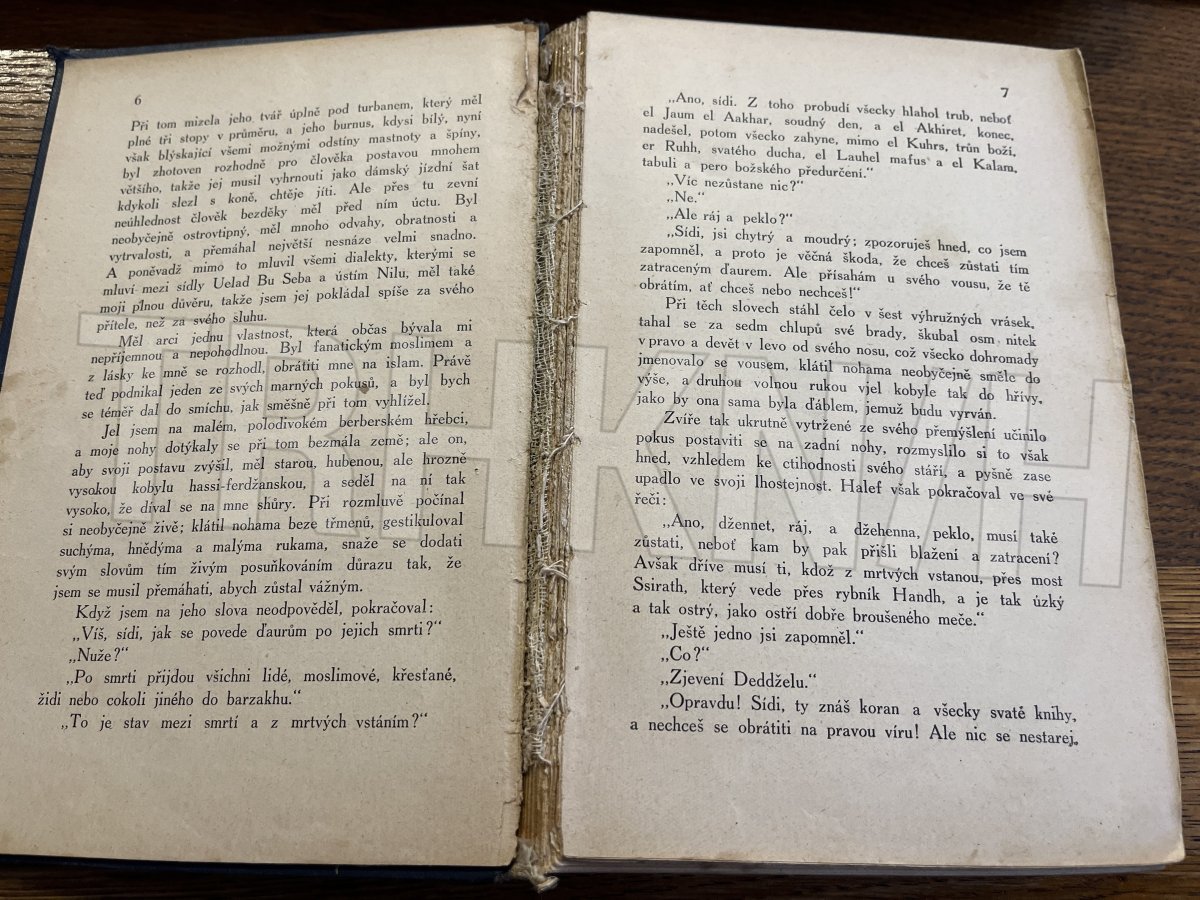 6
Při tom mizela jeho tvář úplně pod turbanem, který měl
plné tři stopy v průměru, a jeho burnus, kdysi bílý, nyní
však blýskající všemi možnými odstíny mastnoty a špíny,
byl zhotoven rozhodně pro člověka postavou mnohem
většího, takže jej musil vyhrnouti jako dámský jízdní šat
kdykoli slezl s koně, chtěje jíti. Ale přes tu zevní
neúhlednost člověk bezděky měl před ním úctu. Byl
neobyčejně ostrovtipný, měl mnoho odvahy, obratnosti a
vytrvalosti, a přemáhal největší nesnáze velmi snadno.
A poněvadž mimo to mluvil všemi dialekty, kterými se
mluví mezi sídly Uelad Bu Seba a ústím Nilu, měl také
moji plnou důvěru, takže jsem jej pokládal spíše za svého
přítele, než za svého sluhu.
Měl arci jednu vlastnost, která občas bývala mi
nepříjemnou a nepohodlnou. Byl fanatickým moslimem a
z lásky ke mně se rozhodl, obrátiti mne na islam. Právě
teď podnikal jeden ze svých marných pokusů, a byl bych
se téměř dal do smíchu, jak směšně při tom vyhlížel.
Jel jsem na malém, polodivokém berberském hřebci,
a moje nohy dotýkaly se při tom bezmála země; ale on,
aby svoji postavu zvýšil, měl starou, hubenou, ale hrozně
vysokou kobylu hassi-ferdžanskou, a seděl na ní tak
vysoko, že díval se na mne shůry. Při rozmluvě počínal
si neobyčejně živě; klátil nohama beze třmenů, gestikuloval
suchýma, hnědýma a malýma rukama, snaže se dodati
svým slovům tím živým posuňkováním důrazu tak, že
jsem se musil přemáhati, abych zůstal vážným.
Když jsem na jeho slova neodpověděl, pokračoval:
„Víš, sídi, jak se povede ďaurům po jejich smrti?"
„Nuže?"
„Po smrti přijdou všichni lidé, moslimové, křesťané,
židi nebo cokoli jiného do barzakhu."
„To je stav mezi smrtí a z mrtvých vstáním?"
7
„Ano, sídi. Z toho probudí všecky hlahol trub, neboť
el Jaum el Aakhar, soudný den, a el Akhiret, konec,
nadešel, potom všecko zahyne, mimo el Kuhrs, trůn boží,
er Ruhh, svatého ducha, el Lauhel mafus a el Kalam,
tabuli a pero božského předurčení."
„Víc nezůstane nic?"
„Ne."
„Ale ráj a peklo?"
„Sídi, jsi chytrý a moudrý; zpozoruješ hned, co jsem
zapomněl, a proto je věčná škoda, že chceš zůstati tím
zatraceným ďaurem. Ale přísahám u svého vousu, že tě
obrátím, ať chceš nebo nechceš!"
Při těch slovech stáhl čelo v šest výhružných vrásek,
tahal se za sedm chlupů své brady, škubal osm nitek
v pravo a devět v levo od svého nosu, což všecko dohromady
jmenovalo se vousem, klátil nohama neobyčejně směle do
výše, a druhou volnou rukou vjel kobyle tak do hřívy,
jako by ona sama byla ďáblem, jemuž budu vyrván.
Zvíře tak ukrutně vytržené ze svého přemýšlení učinilo
pokus postaviti se na zadní nohy, rozmyslilo si to však
hned, vzhledem ke ctihodnosti svého stáří, a pyšně zase
upadlo ve svoji lhostejnost. Halef však pokračoval ve své
řeči:
„Ano, džennet, ráj, a džehenna, peklo, musí také
zůstati, neboť kam by pak přišli blažení a zatracení?
Avšak dříve musí ti, kdož z mrtvých vstanou, přes most
Ssirath, který vede přes rybník Handh, a je tak úzký
a tak ostrý, jako ostří dobře broušeného meče."
„Ještě jedno jsi zapomněl."
„Co?"
„Zjevení Deddželu."
„Opravdu! Sídi, ty znáš koran a všecky svaté knihy,
a nechceš se obrátiti na pravou víru! Ale nic se nestarej,